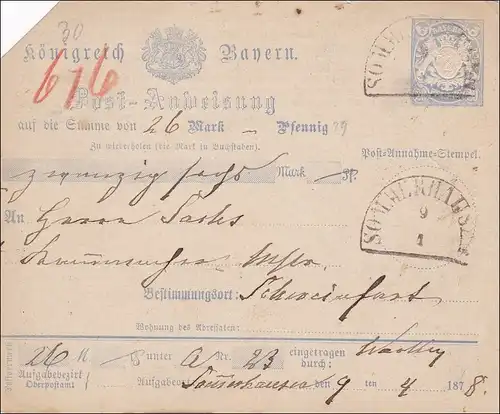 30
Königreich Bayern.
616
Post-Anweisung
auf die Summe von 26 Mark – Pfennig
Zu wiederholen (die Mark in Buchstaben).
Post-Annahme-Stempel.
zwanzig sechs Mark Pf.
SOMMERHAUSEN
9
1
An Herrn Sachs
Bestimmungsort: Schweinfurt
Wohnung des Adressaten:
26 M unter A Nr. 23 eingetragen durch:
Aufgabebezirk
Oberpostamt
Aufgabe Sommerhausen den 9 ten 187 8.